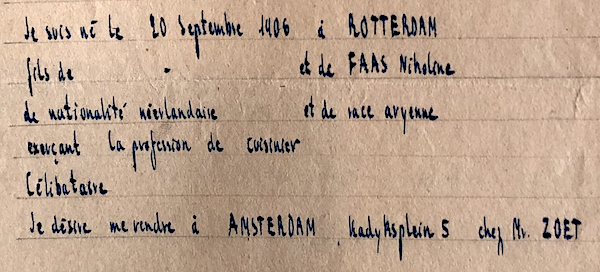 Je suis né le 20 Septembre 1906 à ROTTERDAM
fils de - et de FAAS Niholine
de nationalité néerlandaise et de race aryenne
exerçant la profession de cuisinier
Célibataire
Je désire me rendre à AMSTERDAM Kadyksplein 5 chez Mr. ZOET